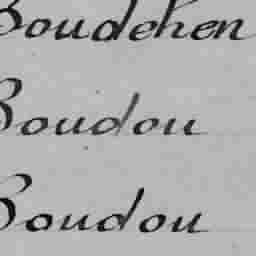 Boudehen
Boudou
Boudou